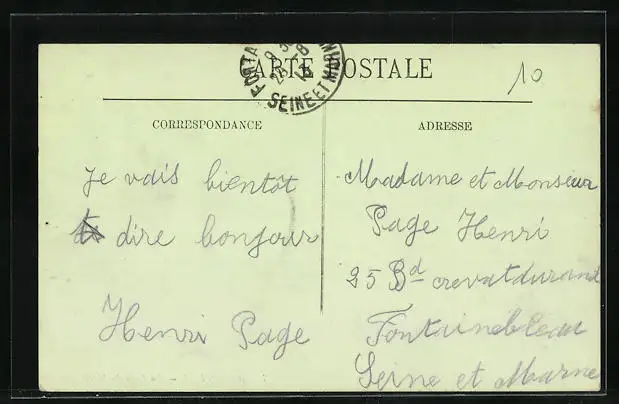 CARTE POSTALE
10
SEINE ET MARNE
CORRESPONDANCE
Je vais bientôt
dire bonjour
Henri Page
ADRESSE
Madame et Monsieur
Page Henri
25 Bd crevatdurand
Fontainebleau
Seine et Marne